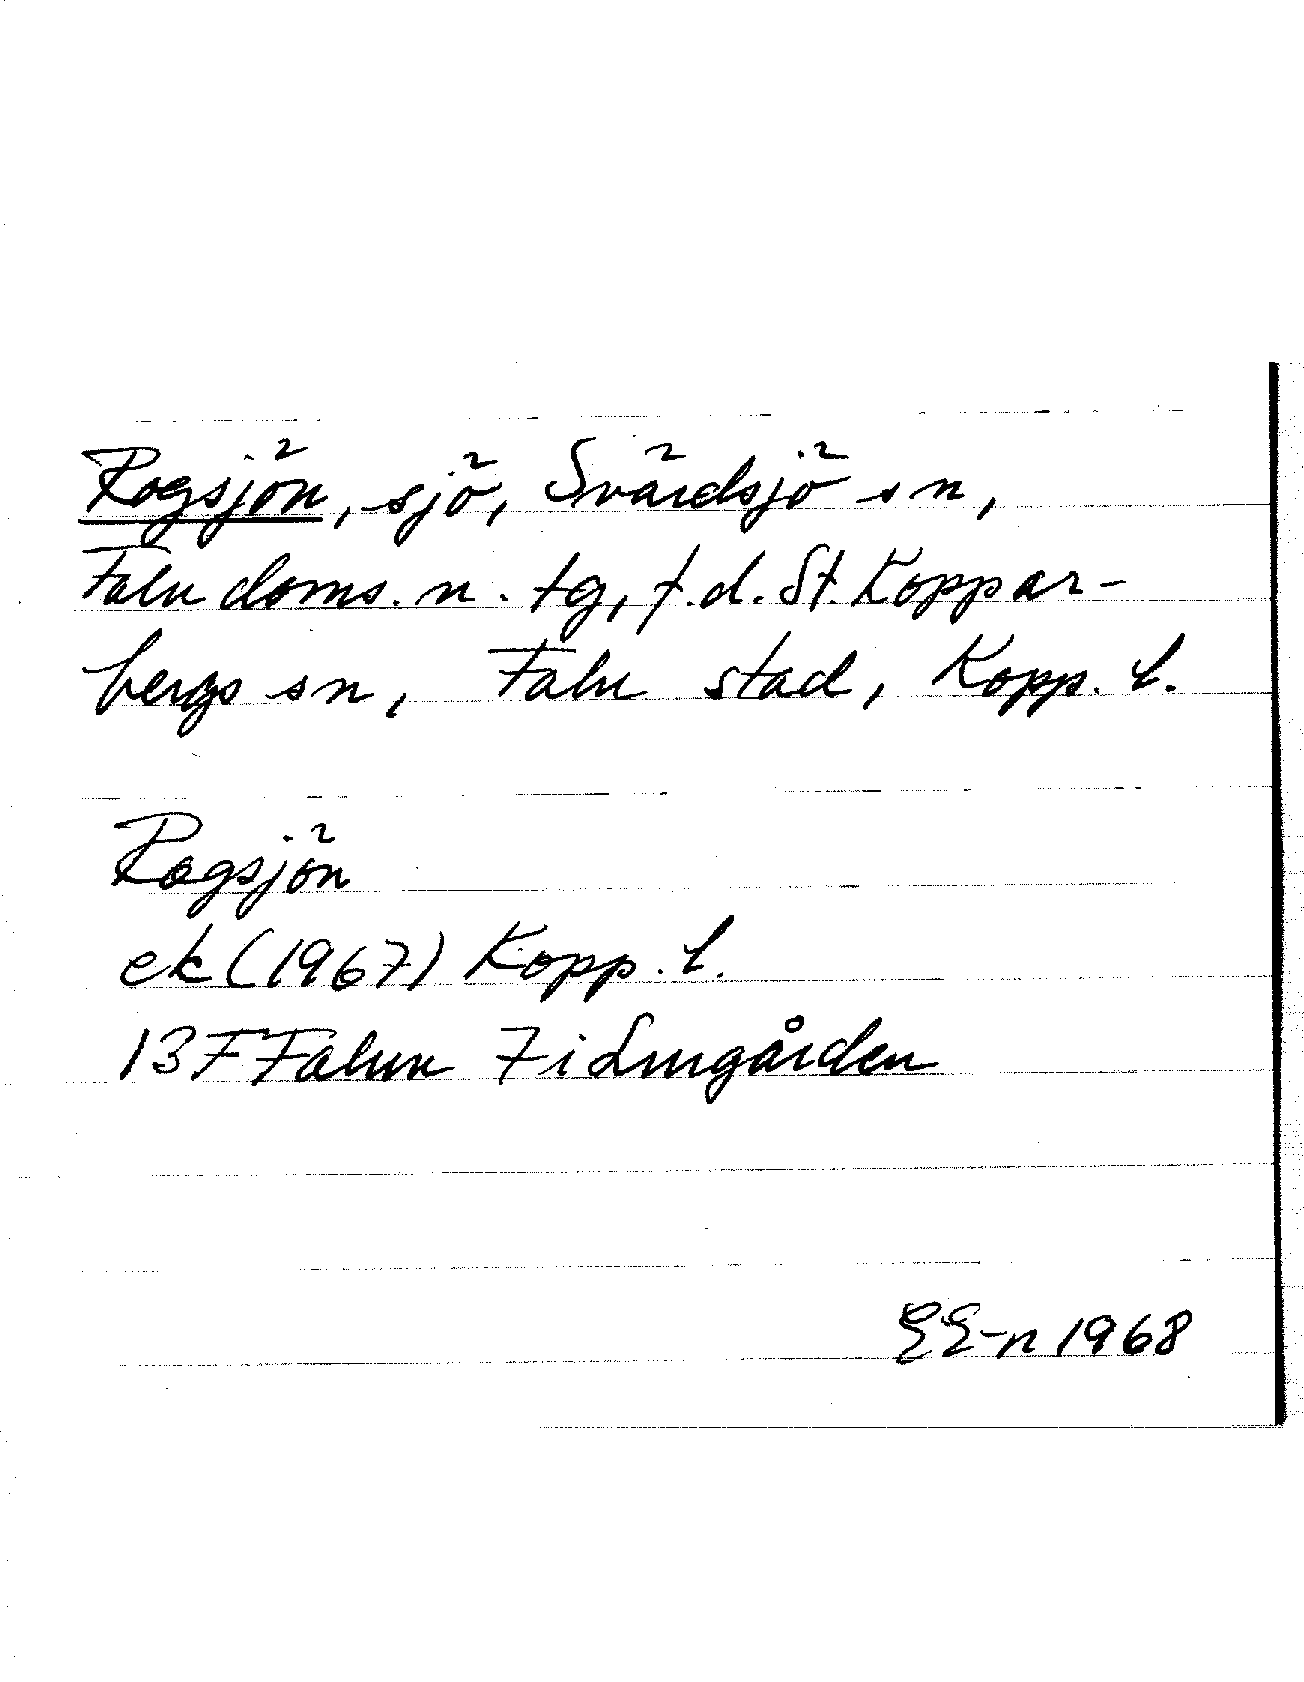 Rogsjön, sjö, Svärdsjö sn,
Falu doms. n. tg, f.d. St. Koppar-
bergs sn, Falu stad, Kopp. l.
Rogsjön
ek (1967) Kopp. l.
13F Falun 7i Lingården
EE-n 1968